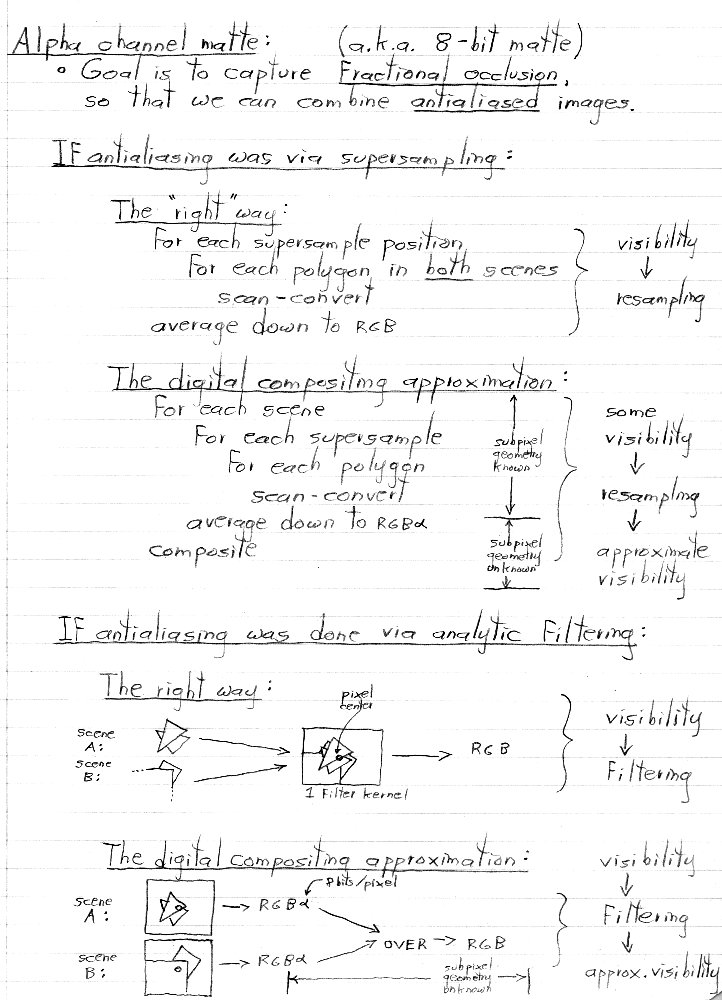 Alpha channel matte: (a.k.a. 8-bit matte)
• Goal is to capture Fractional occlusion,
so that we can combine antialiased images.
IF antialiasing was via supersampling:
The "right" way:
For each supersample position
For each polygon in both scenes
scan-convert
average down to RGB
visibility
↓
resampling
The digital compositing approximation:
For each scene
For each supersample
For each polygon
scan-convert
average down to RGBα
composite
subpixel
geometry
known
subpixel
geometry
unknown
some
visibility
↓
resampling
↓
approximate
visibility
IF antialiasing was done via analytic Filtering:
The right way:
scene
A:
scene
B:
pixel
center
1 Filter kernel
→ RGB
visibility
↓
Filtering
The digital compositing approximation:
scene
A:
→ RGBα
8 bits/pixel
scene
B:
→ RGBα
OVER → RGB
subpixel
geometry
unknown
visibility
↓
Filtering
↓
approx. visibility